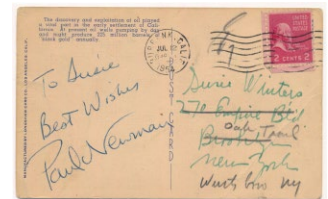 The discovery and exploitation of oil played
a vital part in the early settlement of Cali-
fornia. At present oil wells pumping by day
and night produce 325 million barrels of
"black gold" annually.
To Susie
Best Wishes
Paul Newman
POST CARD
CALIF.
JUL
2 CENTS 2
Susie Winters
270 Empire Bl'd
Oak Trail
Brooklyn
New York
Wurtsboro NY